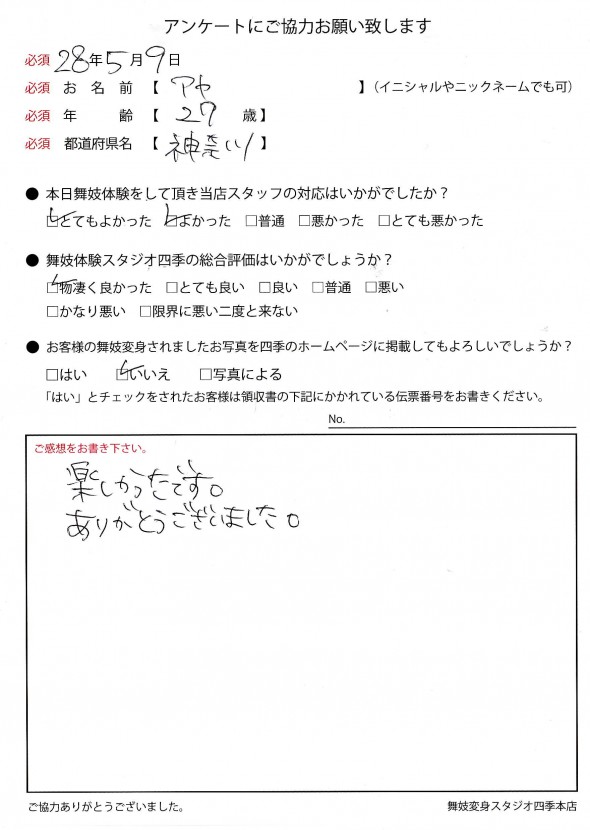 アンケートにご協力お願い致します
必須 28年5月9日
必須 お名前【 アヤ 】(イニシャルやニックネームでも可)
必須 年齢【 27 歳】
必須 都道府県名【 神奈川 】
● 本日舞妓体験をして頂き当店スタッフの対応はいかがでしたか？
☑とてもよかった ☑よかった □普通 □悪かった □とても悪かった
● 舞妓体験スタジオ四季の総合評価はいかがでしょうか？
☑物凄く良かった □とても良い □良い □普通 □悪い
□かなり悪い □限界に悪い二度と来ない
● お客様の舞妓変身されましたお写真を四季のホームページに掲載してもよろしいでしょうか？
□はい ☑いいえ □写真による
「はい」とチェックをされたお客様は領収書の下記にかかれている伝票番号をお書きください。
No.
ご感想をお書き下さい。
楽しかったです。
ありがとうございました。
ご協力ありがとうございました。 舞妓変身スタジオ四季本店